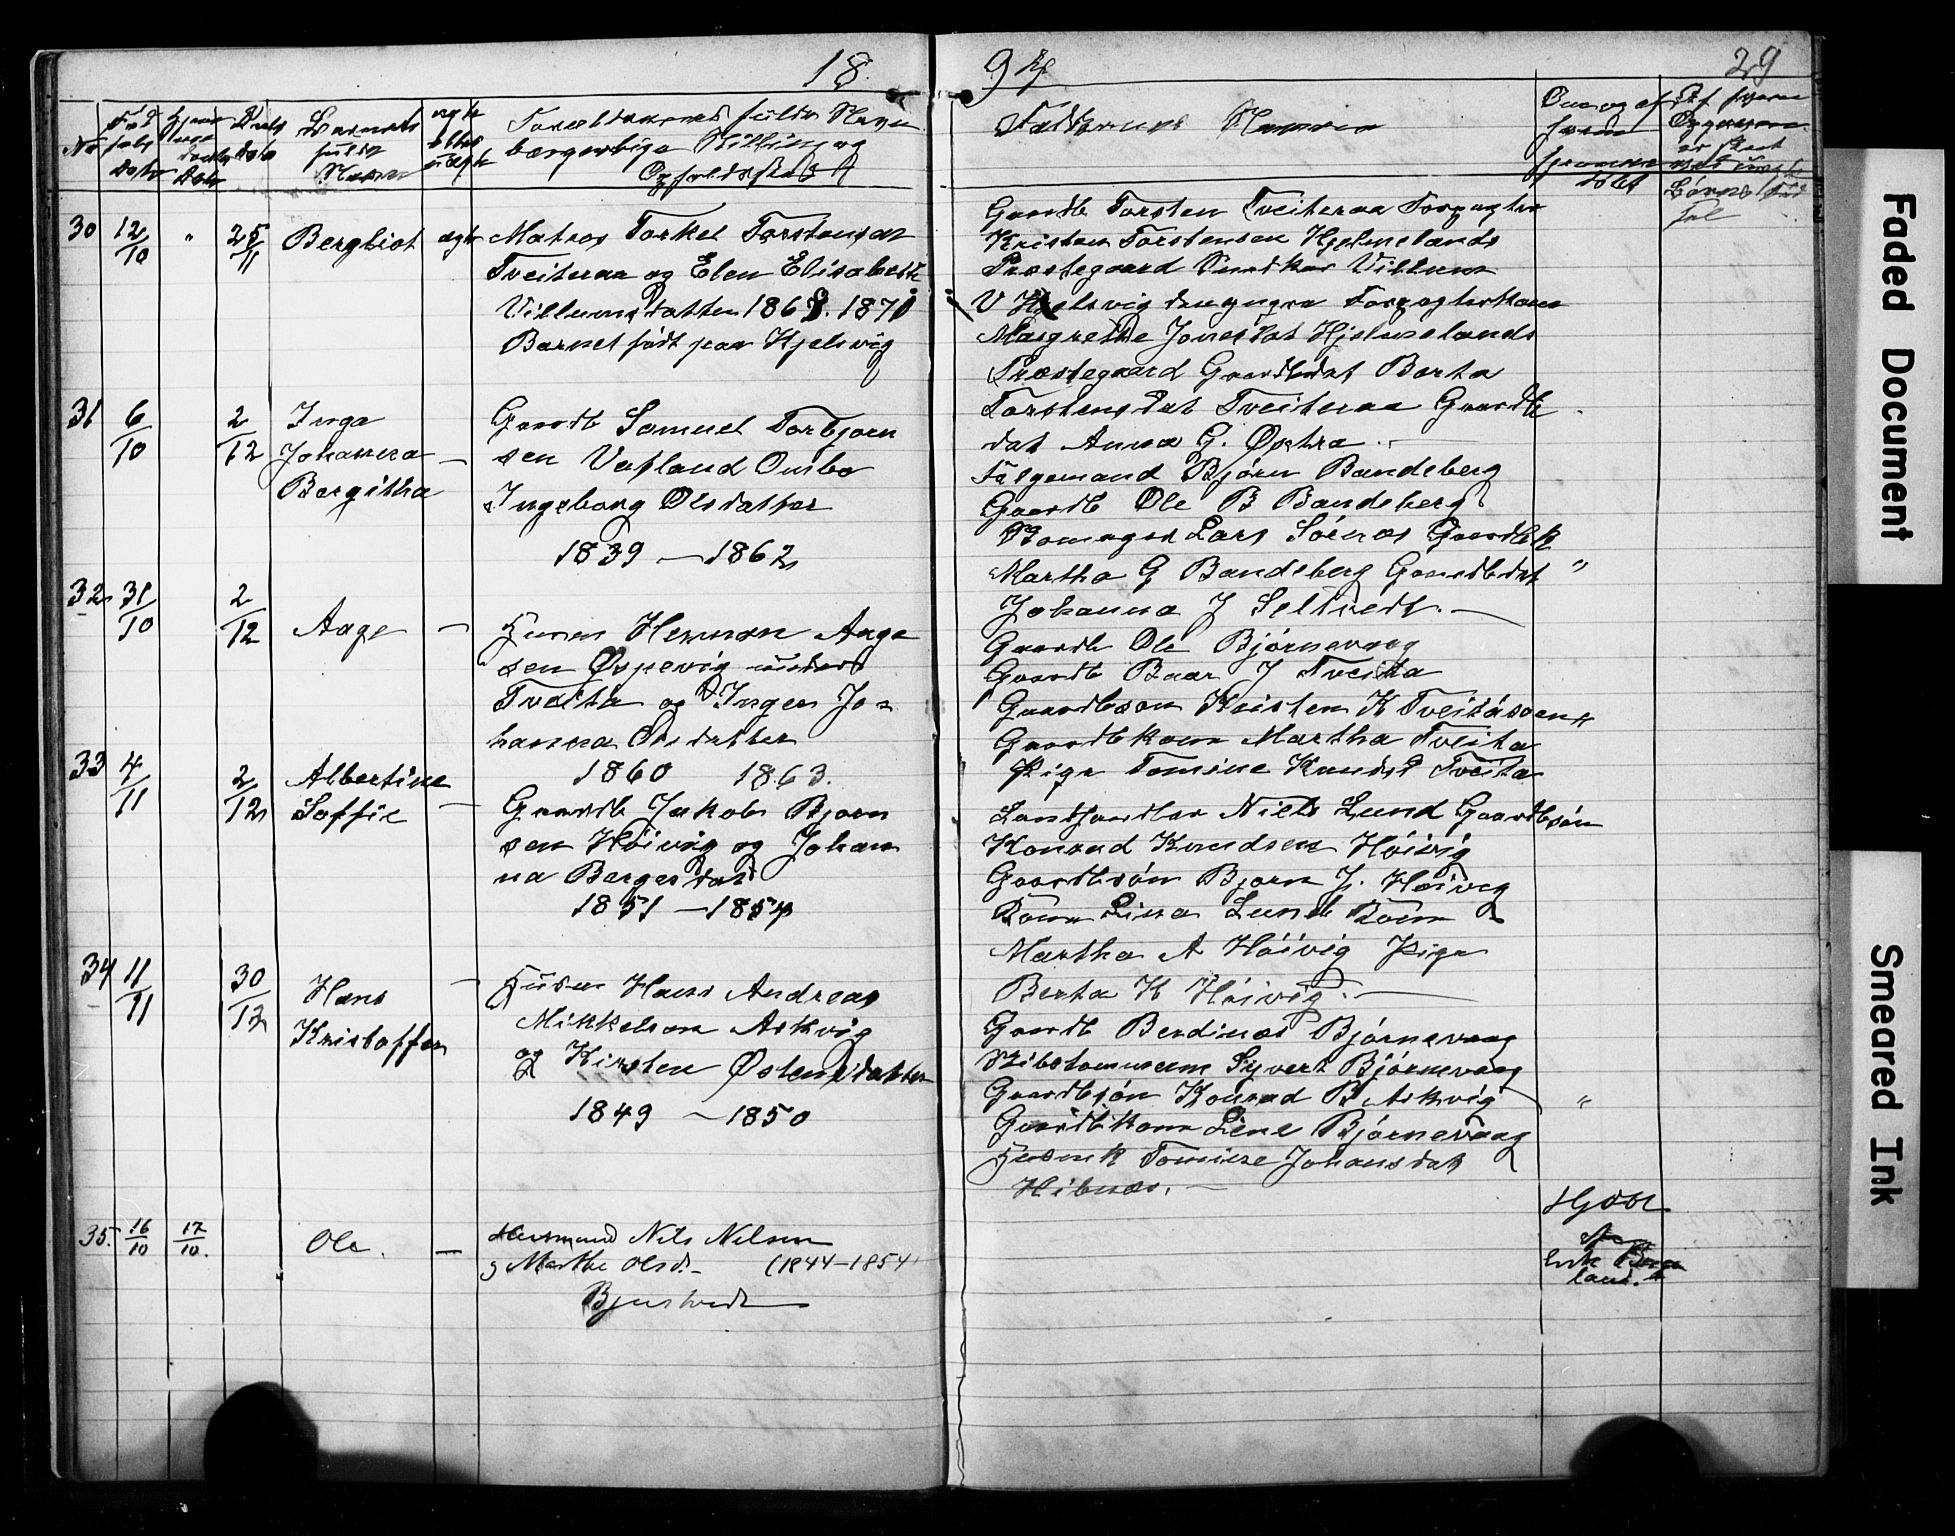 18 94 29
No
Fød
sels
Dato
Hjeme
Daabs
Dato
Barnets
fulde
Navn
ægte
eller
uægte
Forældrenes fulde Navn
borgerlige Stilling og
Opholdssted
Faddernes Navne
30 12/10 " 25/11 Bergliot ægte
Matros Torkel Torstensen
Tveiteraa og Elen Elisabeth
Villumsdatter 1868. 1870
Barnet født paa Kjelsvig
Gaardb Torsten Tveiteraa Forpagter
Kristen Torstensen Hjelmelands
Præstegaard Snedker Villum
V Kjelsvig den yngre Forpagterkone
Margrethe Jonesdat Hjelmelands
Præstegaard Gaardbdat Berta
Torstensdat Tveiteraa Gaardb
dat Anna G. Østra
31 6/10 2/12 Inga
Johanna —
Bergitha
Gaardb Samuel Torbjørn
sen Vatland Ombo
Ingeborg Olsdatter
1839 — 1862
Følgemand Bjørn Bandeberg
Gaardb Ole B Bandeberg
Lars Sørnes Gaardbk
Martha G Bandeberg Gaardbdat "
Johanna J Seltvedt. —
32 31/10 2/12 Aage —
Husm Herman Aage
sen Øspevig under
Tveita og Inger Jo-
hanna Olsdatter
1860 1863.
Gaardb Ole Bjørnevaag
Gaardb Baar J Tveita
Gaardbsøn Kristen K Tveitaasen
Gaardbkone Martha Tveita
Pige Tomine Knudsd Tveita
33 4/11 2/12 Albertine
Soffie —
Gaardb Jakob Bjørn
sen Høivig og Johan
na Bergesdat
1851 — 1854
Landhandler Niels Lund Gaardbsøn
Konrad Knudsen Høivig
Gaardbsøn Bjørn J. Høivig
Lina Lund
Martha A Høivig Pige
Berta K Høivig. —
34 11/11 30/12 Hans
Kristoffer —
Husm Hans Andreas
Mikkelsen Askvig
og Kirsten Østensdatter
1849 — 1850
Gaardb Berdines Bjørnevaag
Skibstømmerm Syvert Bjørnevaag
Gaardbsøn Konrad B Askvig "
Gaardbkone Line Bjørnevaag
Husmk Tomine Johansdat
Hibnæs. —
35. 16/10 17/10. Ole. —
Husmand Nils Nilsen
og Marthe Olsd. (1844–1854)
Hjdøbt
af
land.
Faded Document
Smeared Ink